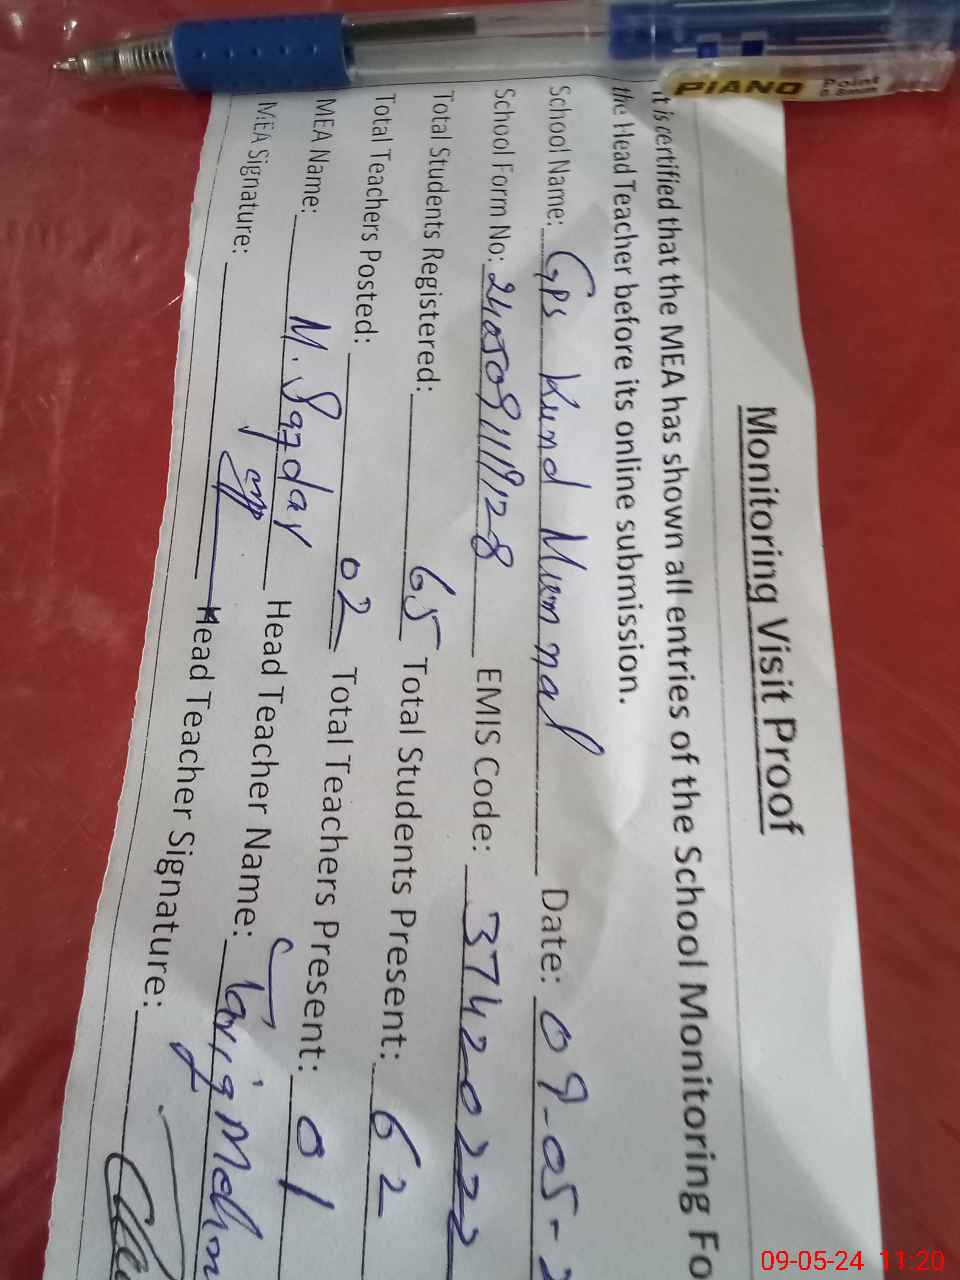 PIANO Point 0.8mm
Monitoring Visit Proof
It is certified that the MEA has shown all entries of the School Monitoring Fo
the Head Teacher before its online submission.
School Name: GPS Kund Mummal Date: 09-05-2
School Form No: EMIS Code: 37420222
Total Students Registered: 65 Total Students Present: 62
Total Teachers Posted: 02 Total Teachers Present: 01
MEA Name: M. Head Teacher Name: Tariq Mehm
MEA Signature: Head Teacher Signature:
09-05-24 11:20